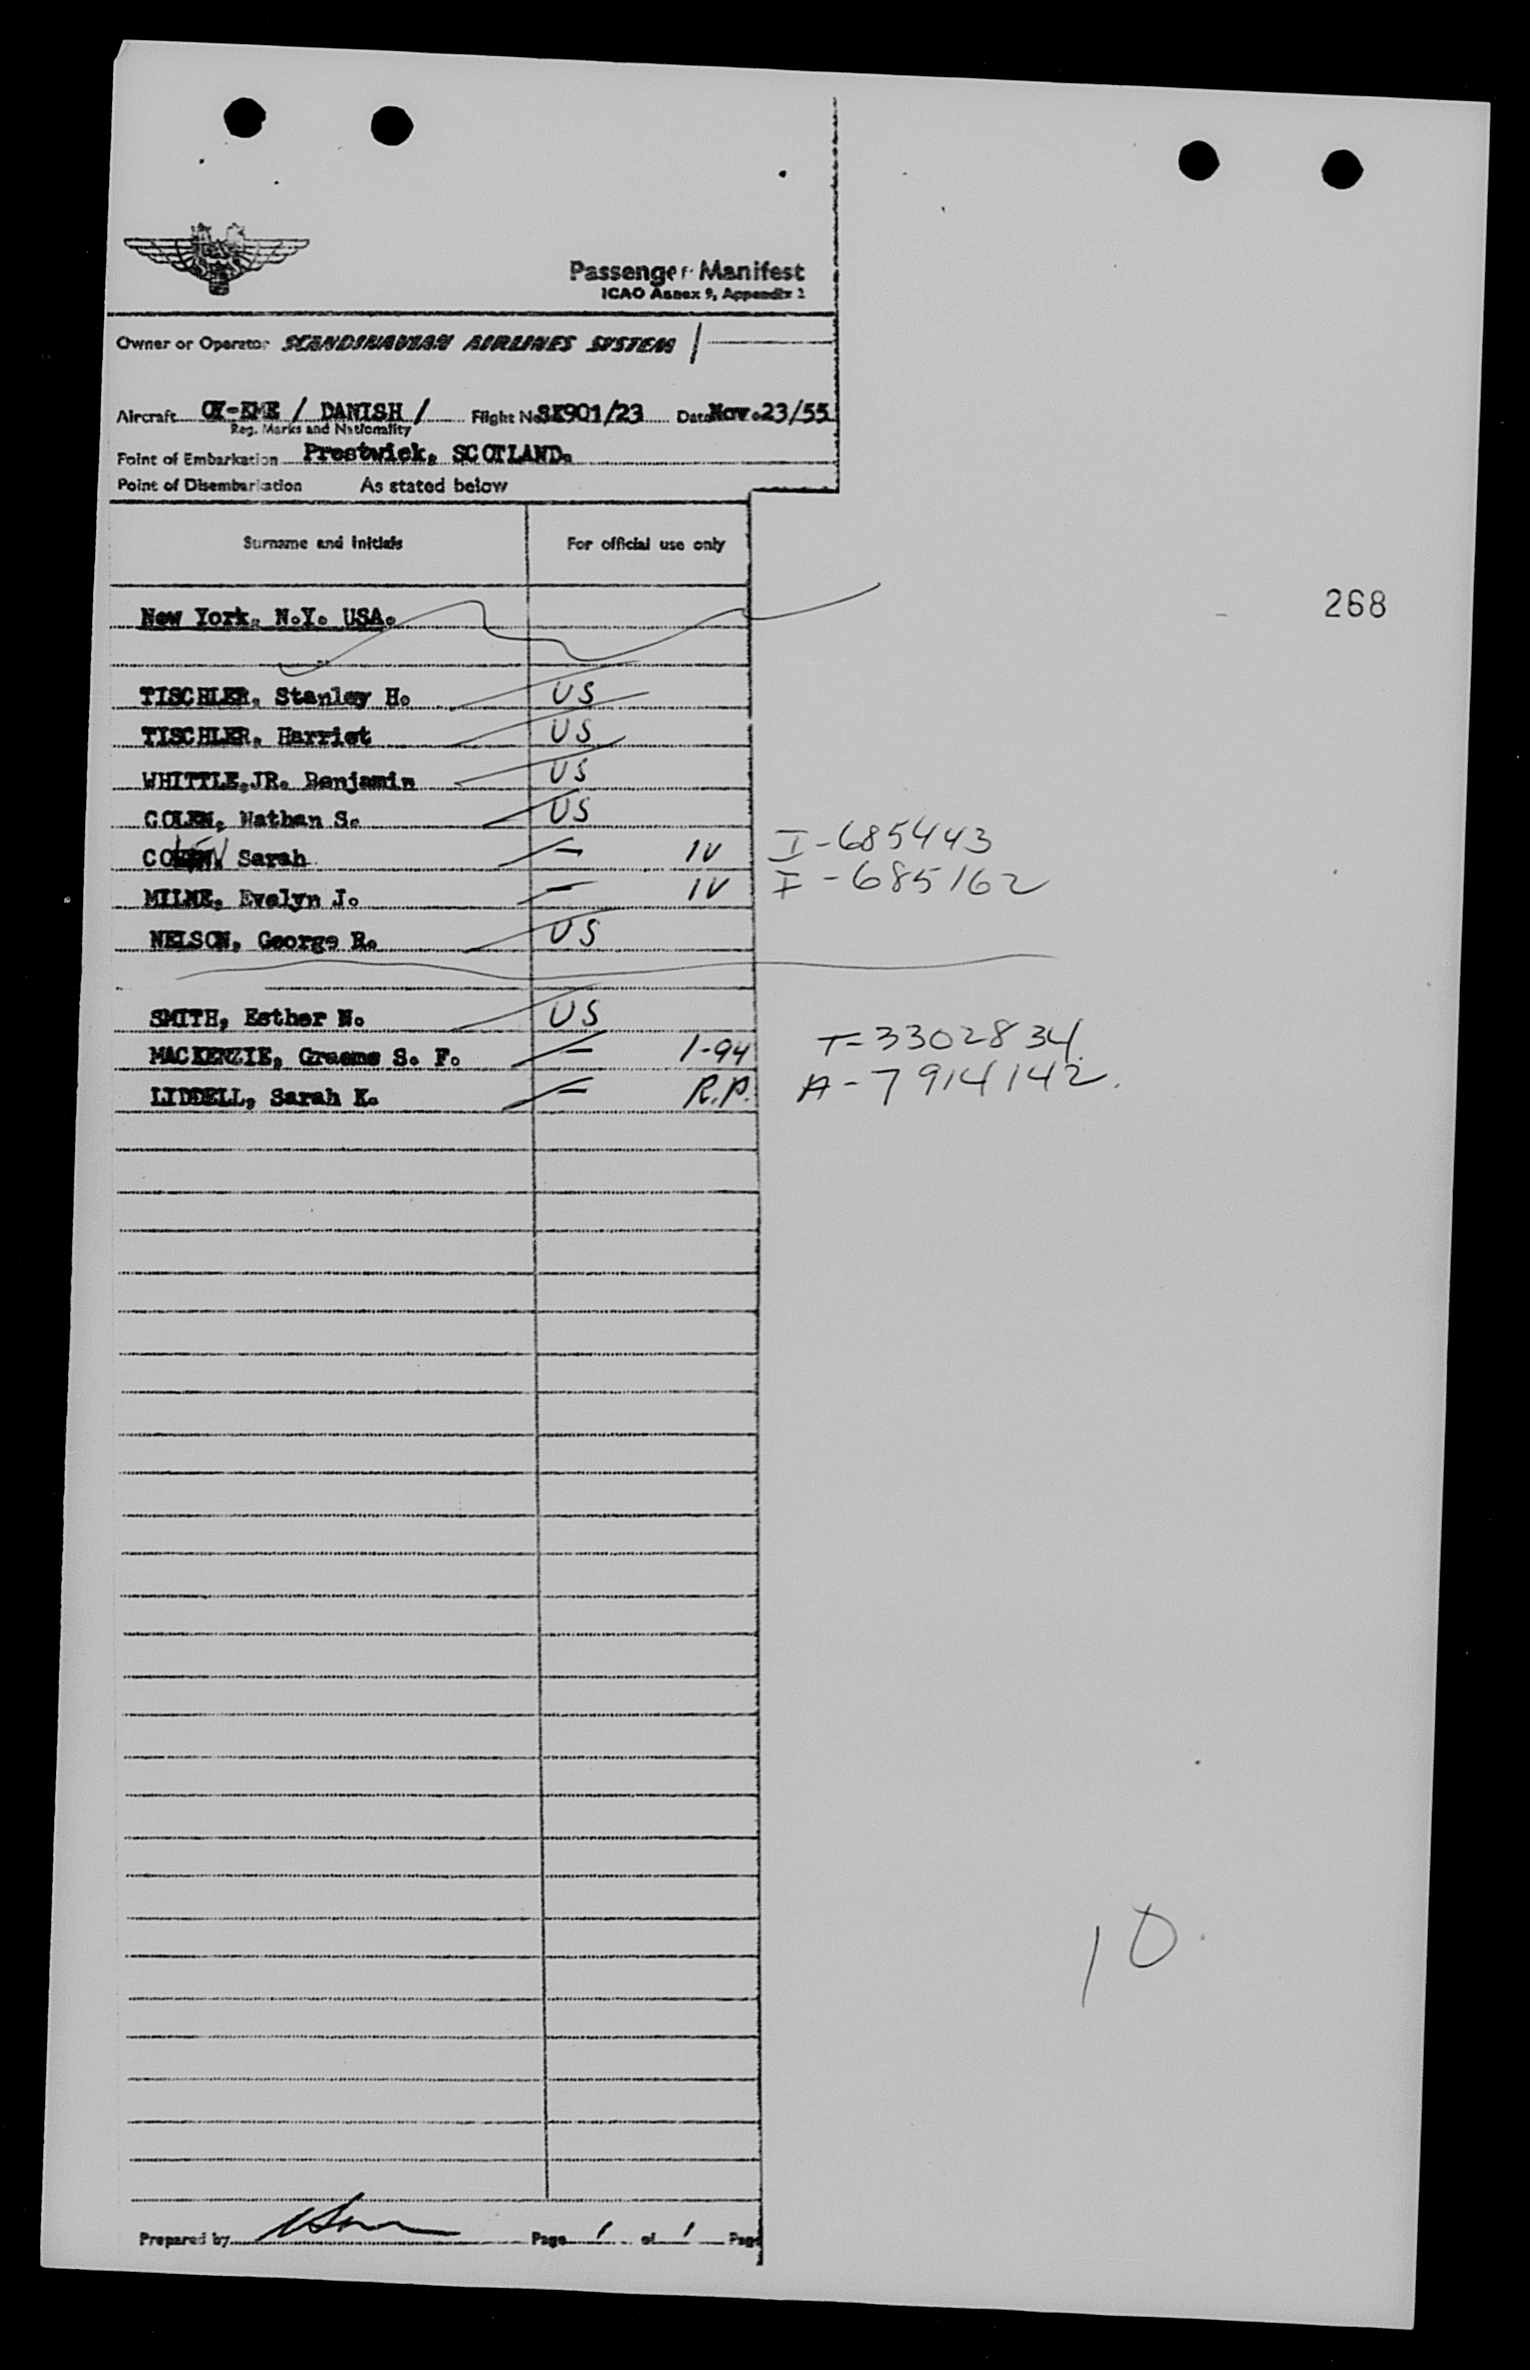 Passenger Manifest
ICAO Annex 9, Appendix 2
Owner or Operator SCANDINAVIAN AIRLINES SYSTEM /
Aircraft / DANISH / Flight No SK901/23 Date Nov. 23/55
Reg. Marks and Nationality
Point of Embarkation Prestwick, SCOTLAND.
Point of Disembarkation As stated below
Surname and initials For official use only
New York, N.Y. USA.
268
TISCHLER, Stanley H. US
TISCHLER, Harriet US
WHITTLE,JR. Benjamin US
COLEN, Nathan S. US
Sarah — IV I-685443
MILNE, Evelyn J. — IV I-685162
NELSON, George R. US
SMITH, Esther N. US
MACKENZIE, Graeme S. F. — 1-94 T-3302834.
LIDDELL, Sarah K. — R.P. A-7914142.
10.
Prepared by Page 1 of 1 Page